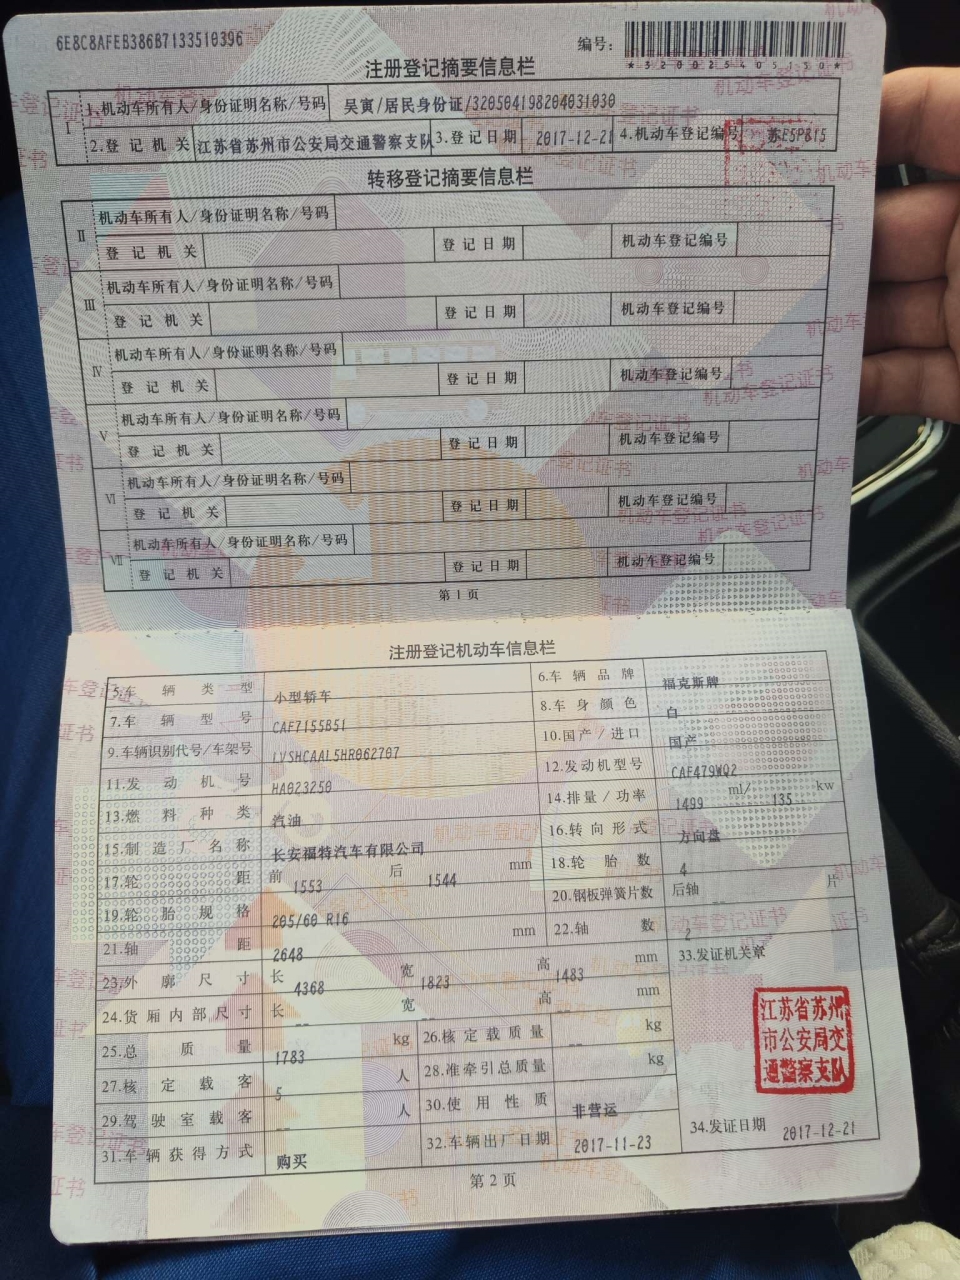 6E8C8AFEB386B7133510396
编号:
*320025405150*
注册登记摘要信息栏
I 1.机动车所有人/身份证明名称/号码 吴寅/居民身份证/320504198204031030
2.登记机关 江苏省苏州市公安局交通警察支队 3.登记日期 2017-12-21 4.机动车登记编号 苏E5PB15
转移登记摘要信息栏
II 机动车所有人/身份证明名称/号码
登记机关 登记日期 机动车登记编号
III 机动车所有人/身份证明名称/号码
登记机关 登记日期 机动车登记编号
IV 机动车所有人/身份证明名称/号码
登记机关 登记日期 机动车登记编号
V 机动车所有人/身份证明名称/号码
登记机关 登记日期 机动车登记编号
VI 机动车所有人/身份证明名称/号码
登记机关 登记日期 机动车登记编号
VII 机动车所有人/身份证明名称/号码
登记机关 登记日期 机动车登记编号
第1页
注册登记机动车信息栏
5.车辆类型 小型轿车 6.车辆品牌 福克斯牌
7.车辆型号 CAF7155B51 8.车身颜色 白
9.车辆识别代号/车架号 LVSHCAAL5HR062707 10.国产/进口 国产
11.发动机号 HA023250 12.发动机型号 CAF479WQ2
13.燃料种类 汽油 14.排量/功率 1499 ml/ 135 kw
15.制造厂名称 长安福特汽车有限公司 16.转向形式 方向盘
17.轮距 前 1553 后 1544 mm 18.轮胎数 4
19.轮胎规格 205/60 R16 20.钢板弹簧片数 后轴 -- 片
21.轴距 2648 mm 22.轴数 2
23.外廓尺寸 长 4368 宽 1823 高 1483 mm 33.发证机关章
24.货厢内部尺寸 长 -- 宽 -- 高 -- mm
25.总质量 1783 kg 26.核定载质量 -- kg
27.核定载客 5 人 28.准牵引总质量 -- kg
29.驾驶室载客 -- 人 30.使用性质 非营运
31.车辆获得方式 购买 32.车辆出厂日期 2017-11-23 34.发证日期 2017-12-21
江苏省苏州
市公安局交
通警察支队
第2页